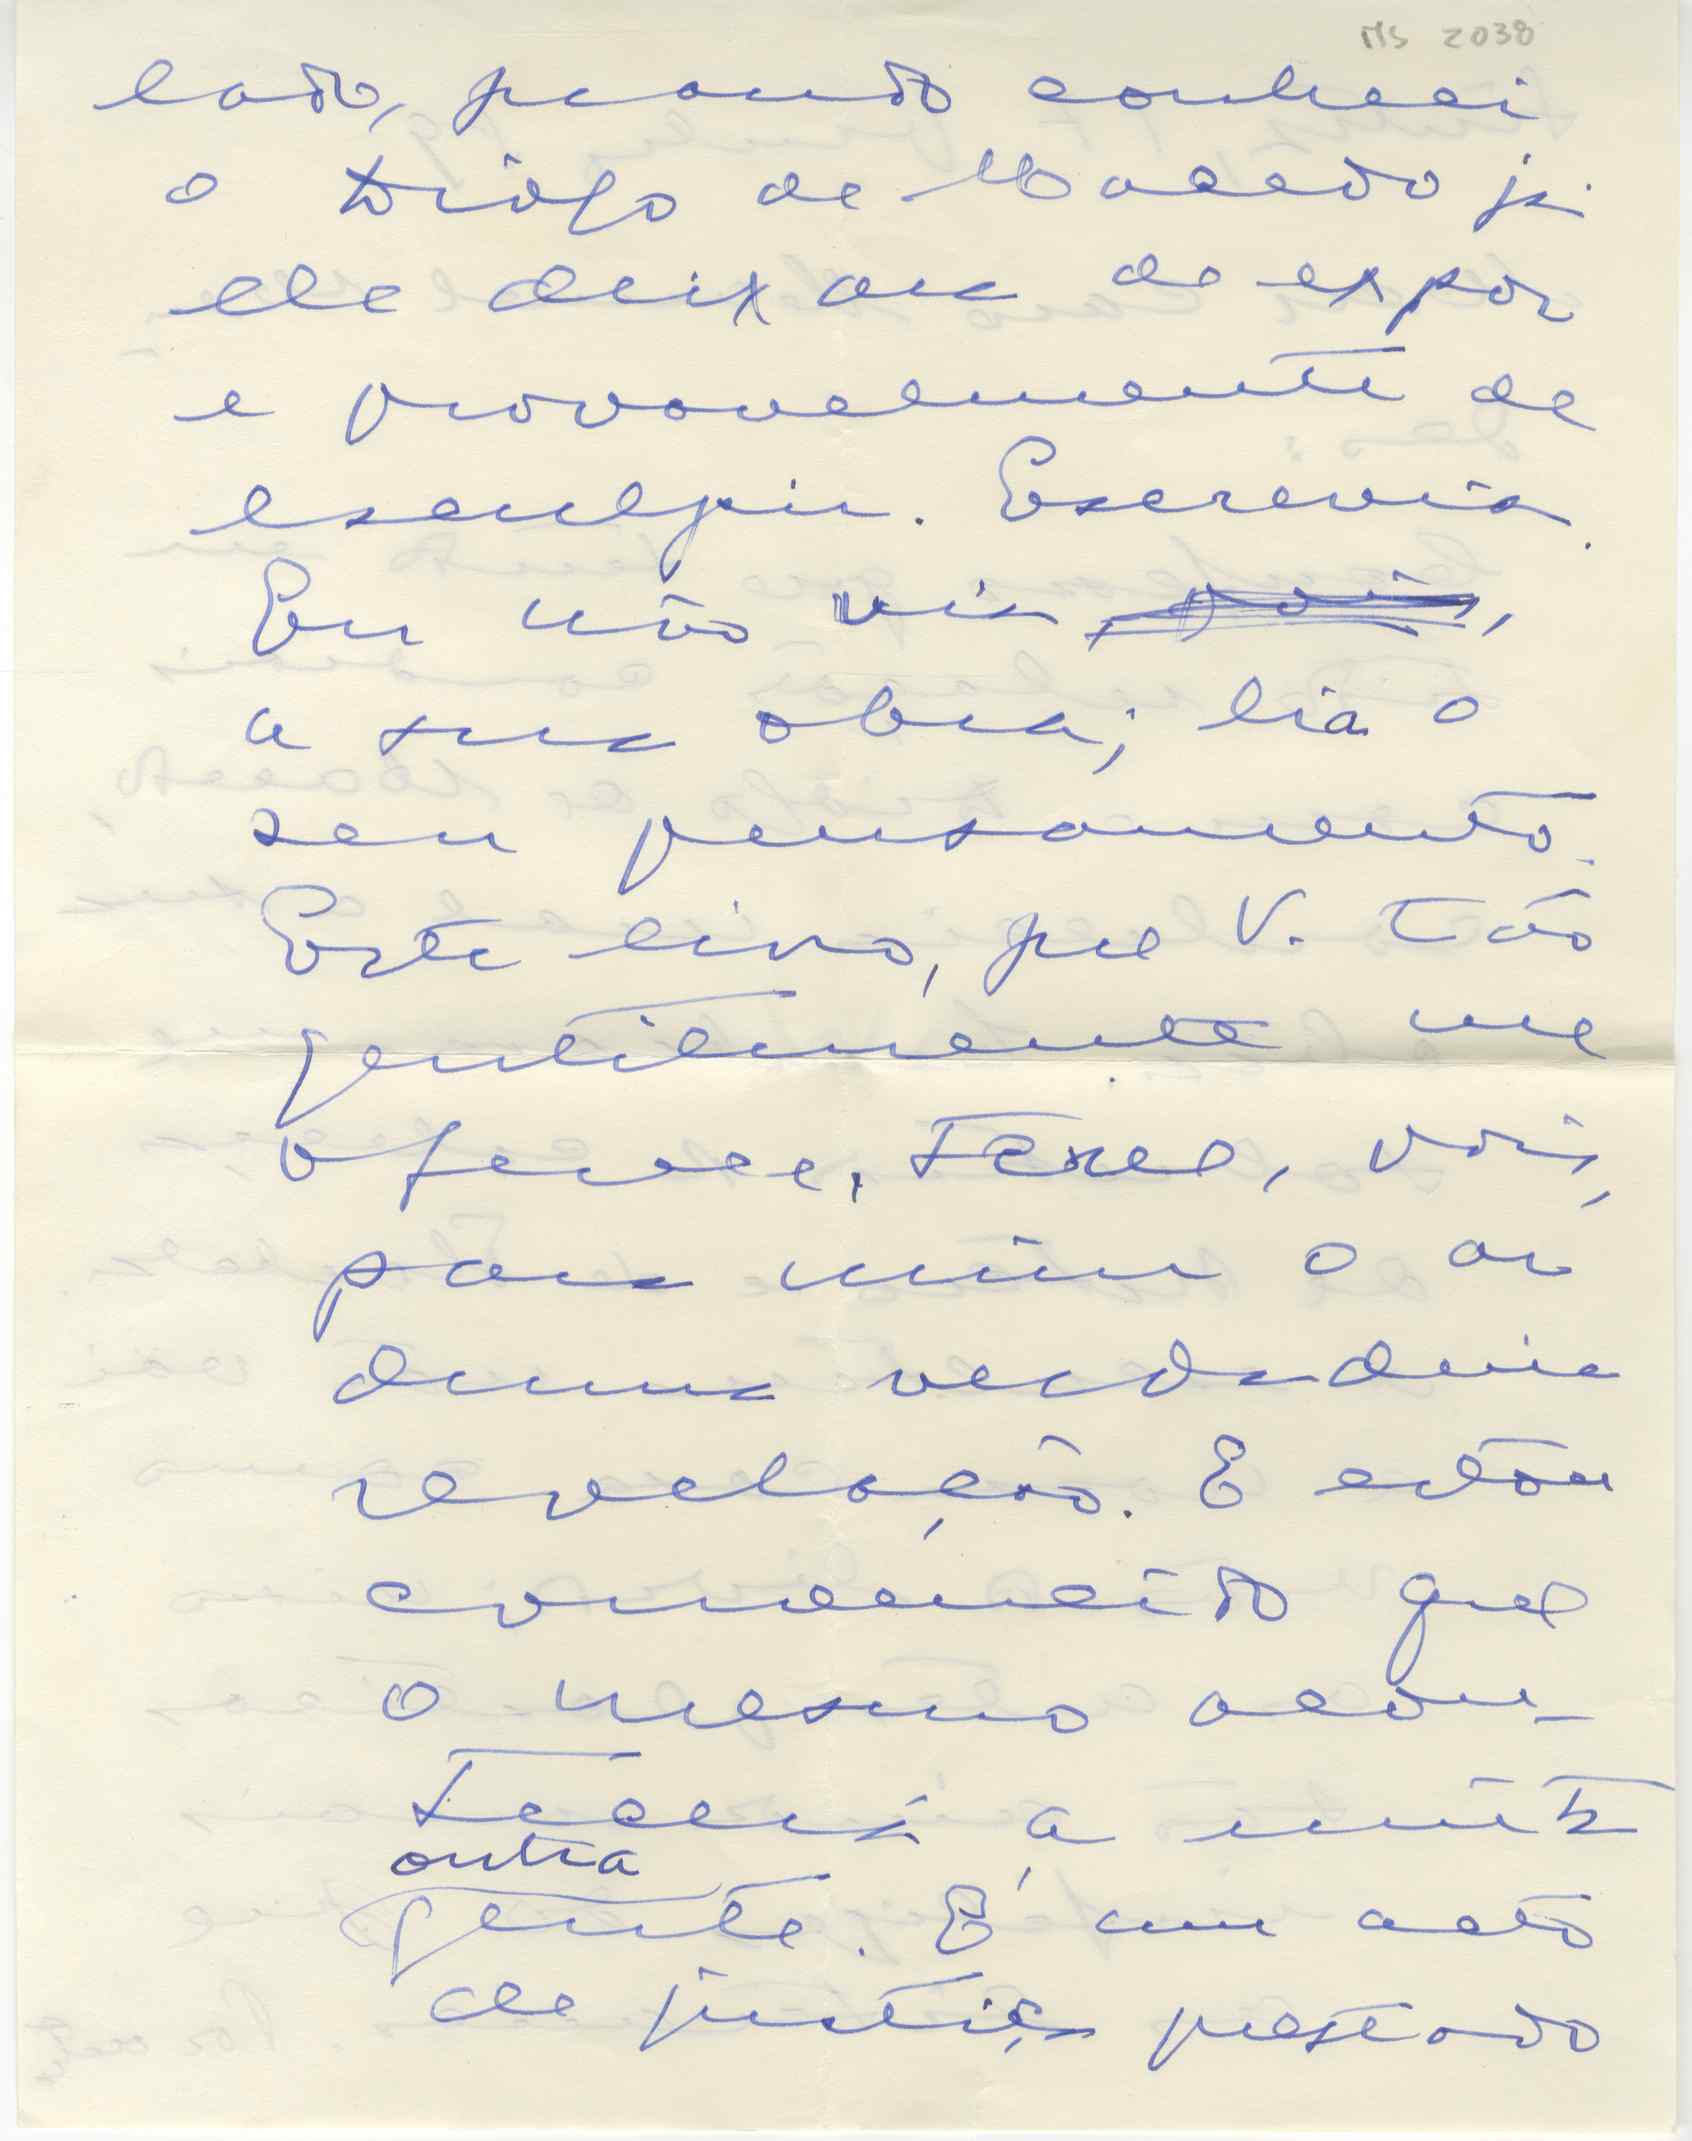 MS 2038
lado, quando conheci
o Diôgo de Macedo já
ele deixara de expor
e provavelmente de
esculpir. Escrevia.
Eu não via pois,
a sua obra; lia o
seu pensamento.
Este livro, que V. tão
gentilmente me
oferece, teve, pois,
para mim o ar
duma verdadeira
revelação. E estou
convencido que
o mesmo acon-
tecerá a muita
outra
gente. É um acto
de justiça prestado